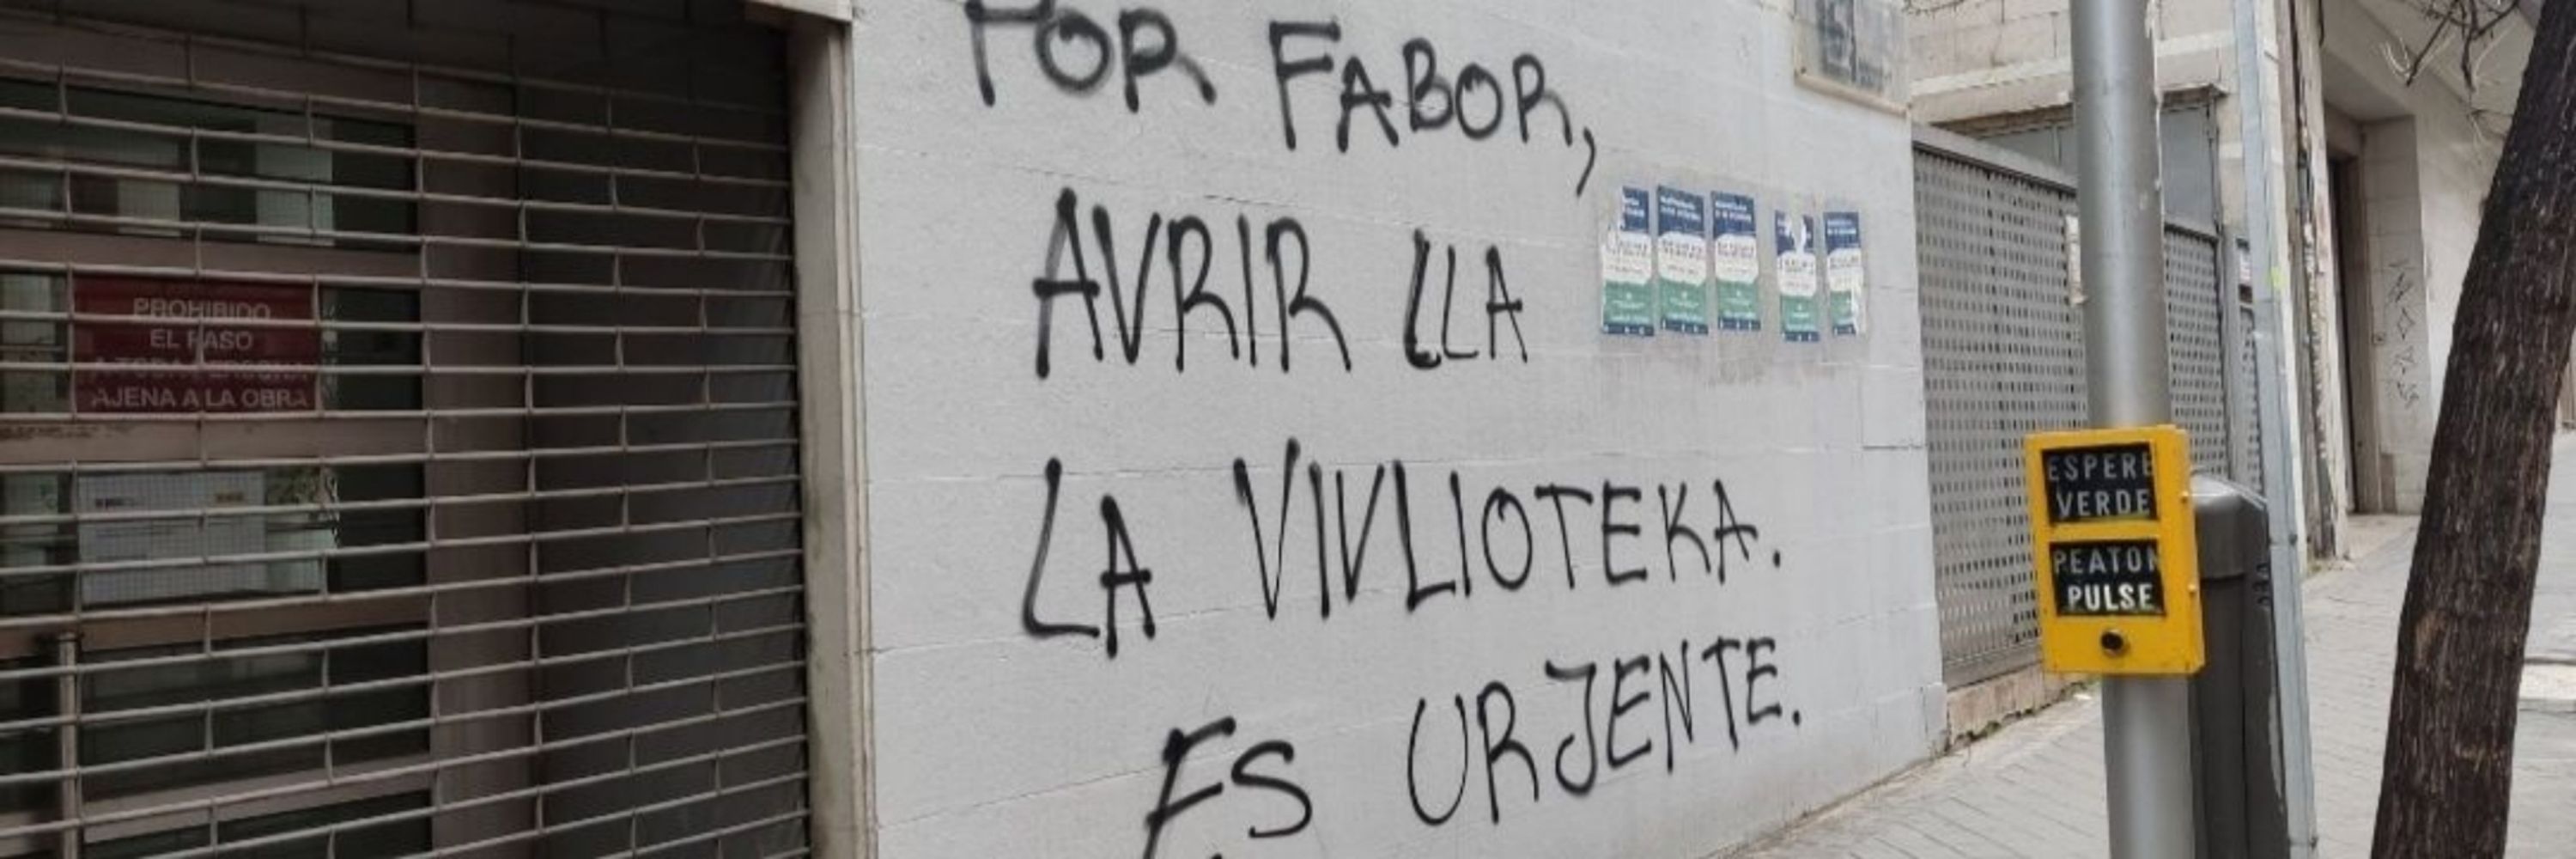 PROHIBIDO
EL PASO
A TODA PERSONA
AJENA A LA OBRA
POR FABOR,
AVRIR LLA
LA VIVLIOTEKA.
ES URJENTE.
ESPERE
VERDE
PEATON
PULSE